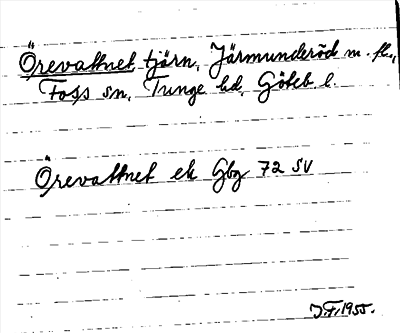 Örevattnet tjärn, Järmunderöd m. fl.,
Foss sn, Tunge hd, Göteb. l.
Örevattnet ek Gbg 72 SV
J.F. 1955.